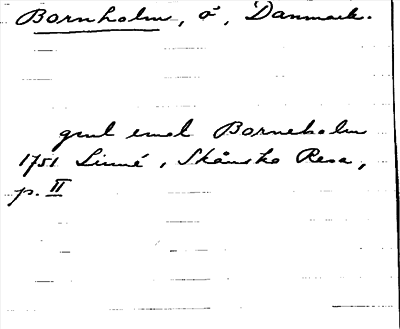 Bornholm, ö, Danmark.
emot Borneholm
1751 Linné, Skånska Resa,
p. II